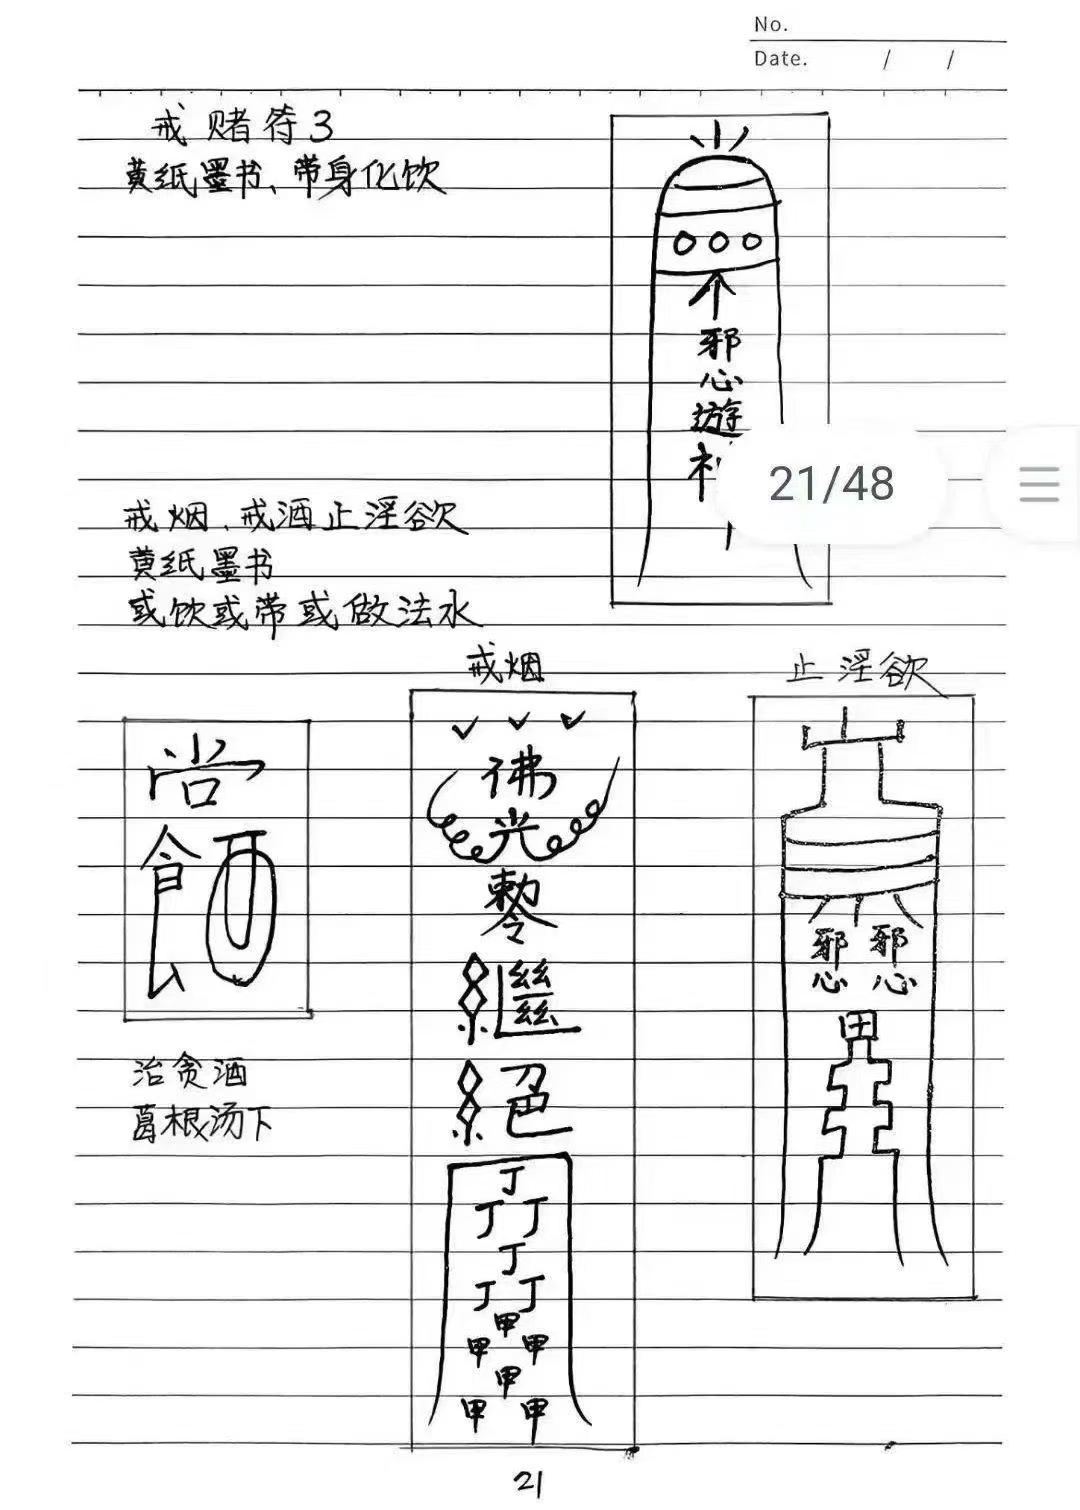 No.
Date. / /
戒赌符3
黄纸墨书、带身化饮
邪
心
遊
21/48
戒烟、戒酒止淫欲
黄纸墨书
或饮或带或做法水
戒烟
止淫欲
佛
光
繼
絕
丁
丁 丁
丁
丁 丁
甲
甲 甲
甲
甲 甲
邪 邪
心 心
田
治贪酒
葛根汤下
21